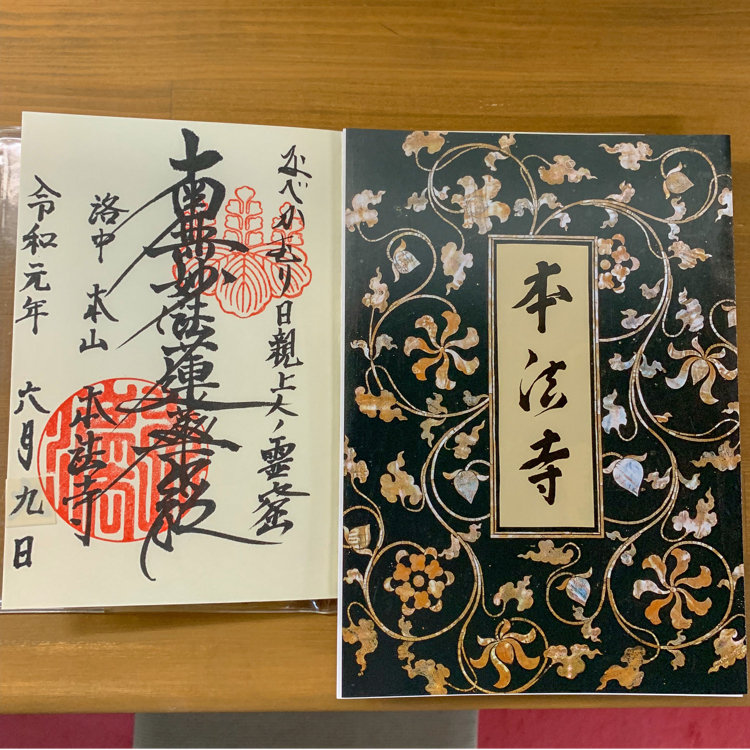 なべかむり日親上人ノ霊窟
南無妙法蓮華経
洛中 本山 本法寺
令和元年 六月九日
本法寺